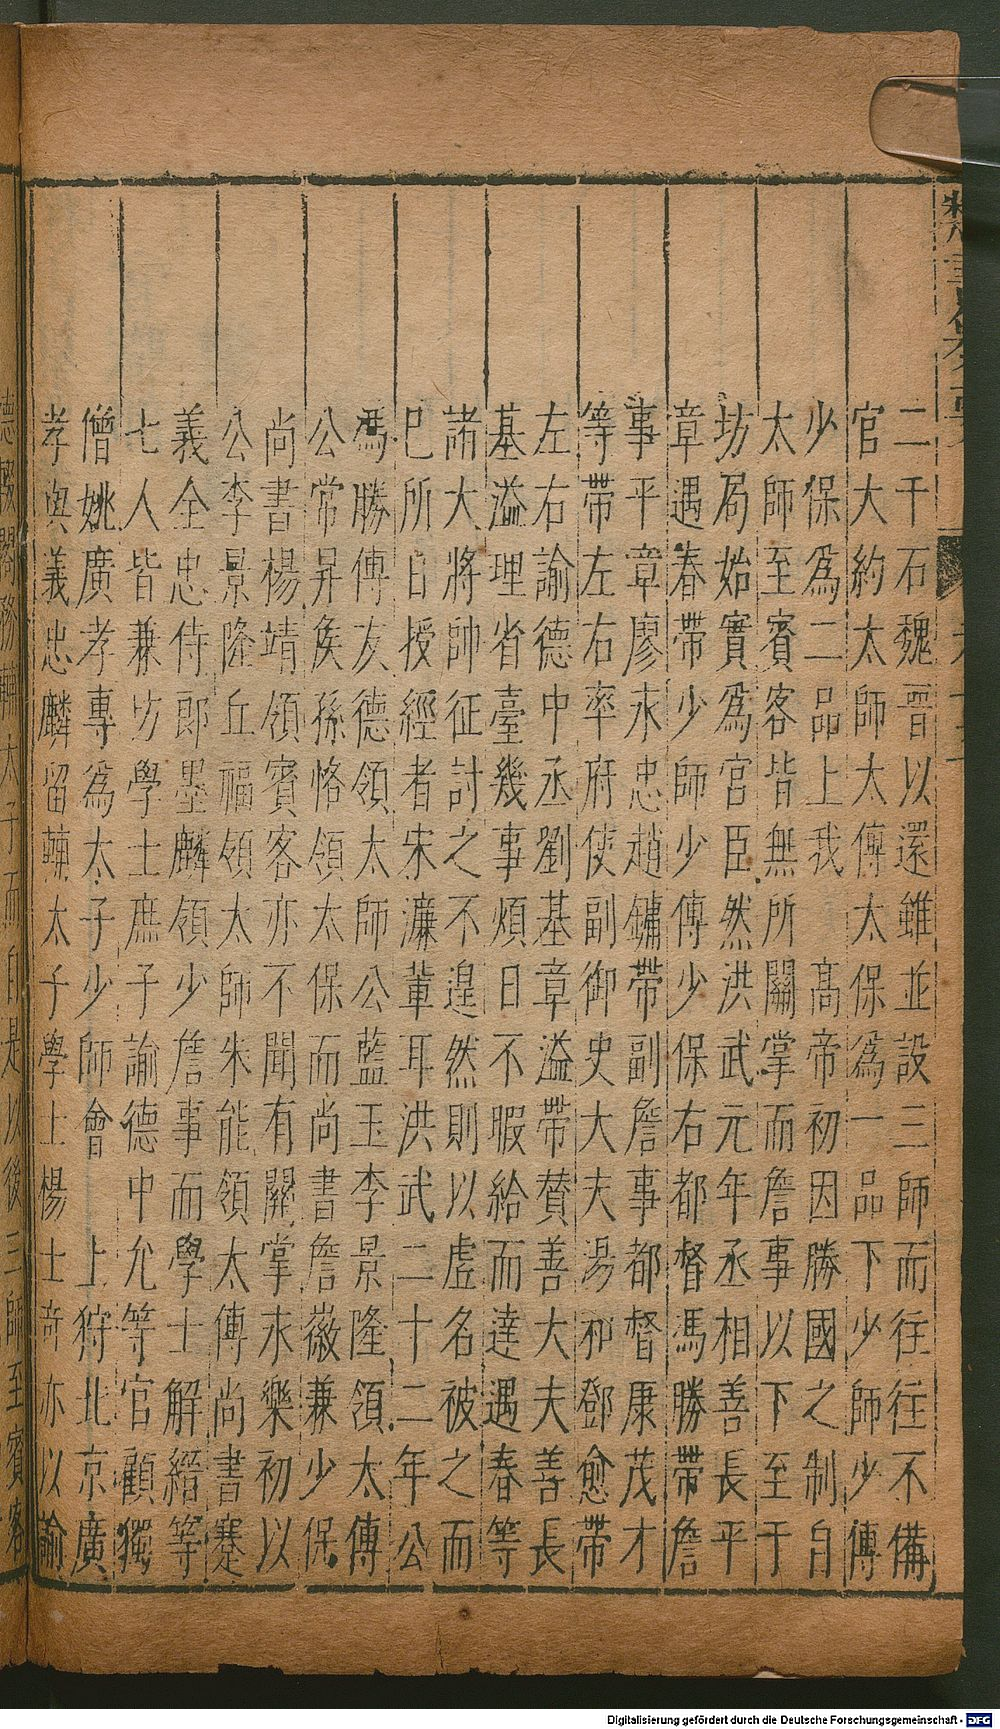 二千石魏晉以還雖並設三師而往往不備
官大約太師太傅太保爲一品下少師少傅
少保爲二品上我　高帝初因勝國之制自
太師至賓客皆無所關掌而詹事以下至于
坊局始實爲宮臣然洪武元年丞相善長平
章遇春帶少師少傅少保右都督馮勝帶詹
事平章廖永忠趙鏞帶副詹事都督康茂才
等帶左右率府使副御史大夫湯和鄧愈帶
左右諭德中丞劉基章溢帶贊善大夫善長
基溢理省臺幾事煩日不暇給而達遇春等
諸大將帥征討之不遑然則以虛名被之而
巳所日授經者宋濂輩耳洪武二十二年公
馮勝傅友德領太師公藍玉李景隆領太傅
公常昇矦孫恪領太保而尚書詹徽兼少保
尚書楊靖領賓客亦不聞有關掌永樂初以
公李景隆丘福領太師朱能領太傅尚書蹇
義全忠侍郎墨麟領少詹事而學士解縉等
七人皆兼坊學士庶子諭德中允等官顧獨
僧姚廣孝專爲太子少師會　上狩北京廣
孝與義忠麟留輔太子學士楊士奇亦以諭
德輟閣務輔太子而自是以後三師至賓客
Digitalisierung gefördert durch die Deutsche Forschungsgemeinschaft - DFG